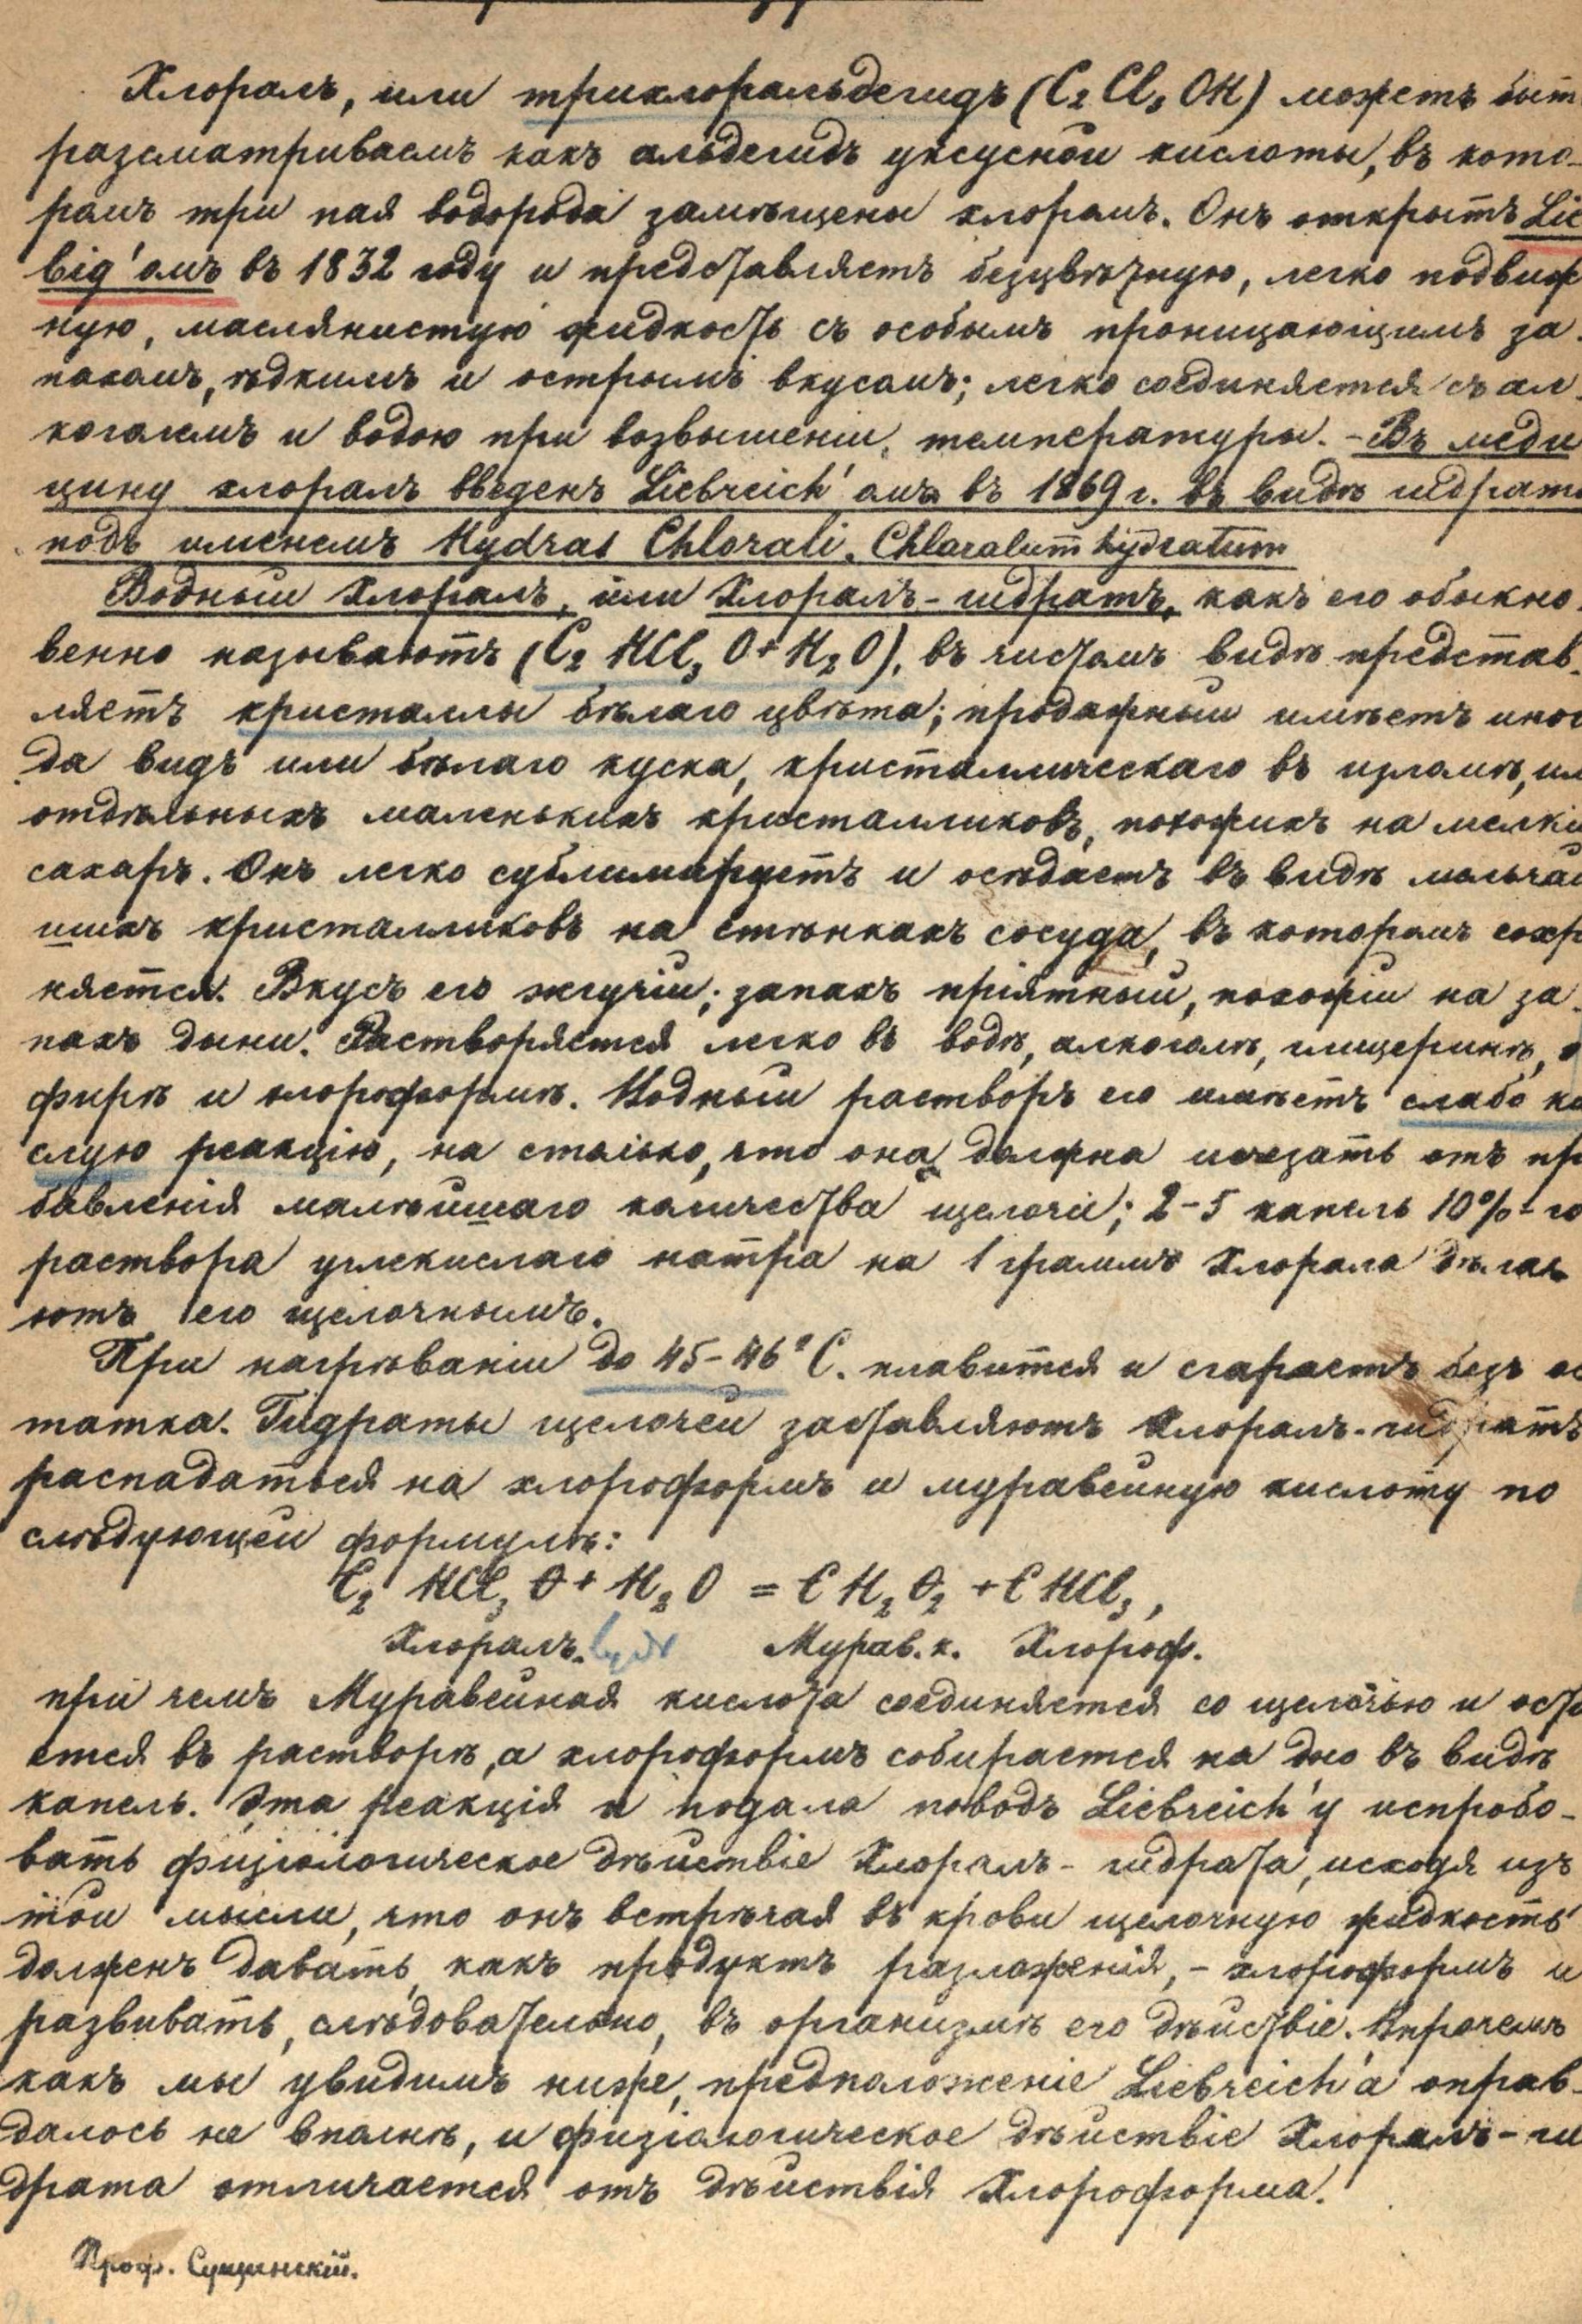 Хлоралъ, или трихлоральдегидъ (C₂Cl₃OH) можетъ быт
разсматриваемъ какъ альдегидъ уксусной кислоты, въ кото-
ромъ три пая водорода замѣщены хлоромъ. Онъ открытъ Lie
big'омъ въ 1832 году и представляетъ безцвѣтную, легко подвиж
ную, маслянистую жидкость съ особымъ проницающимъ за-
пахомъ, ѣдкимъ и острымъ вкусомъ; легко соединяется съ ал-
коголемъ и водою при возвышеніи температуры. - Въ меди
цину хлоралъ введенъ Liebreich'омъ въ 1869 г. въ видѣ гидрата
подъ именемъ Hydras Chlorali, Chloralum hydratum
Водный Хлоралъ, или Хлоралъ-гидратъ, какъ его обыкно-
венно называютъ (C₂HCl₃O+H₂O), въ чистомъ видѣ представ-
ляетъ кристаллы бѣлаго цвѣта; продажный имѣетъ иног
да видъ или бѣлаго куска, кристаллическаго въ изломѣ, ил
отдѣльныхъ маленькихъ кристалликовъ, похожихъ на мелкі
сахаръ. Онъ легко сублимируетъ и осѣдаетъ въ видѣ мельчай
шихъ кристалликовъ на стѣнкахъ сосуда, въ которомъ сохр
няется. Вкусъ его жгучій; запахъ пріятный, похожій на за-
пахъ дыни. Растворяется легко въ водѣ, алкоголѣ, глицеринѣ, э
фирѣ и хлороформѣ. Водный растворъ его имѣетъ слабо ки
слую реакцію, на столько, что она должна исчезать отъ пр
бавленія малѣйшаго количества щелочи; 2-5 капель 10%-го
раствора углекислаго натра на 1 граммъ Хлорала дѣла
ютъ его щелочнымъ.
При нагрѣваніи до 45-46°C. плавится и сгораетъ безъ ос
татка. Гидраты щелочей заставляютъ Хлоралъ-гидратъ
распадаться на хлороформъ и муравейную кислоту по
слѣдующей формулѣ:
C₂HCl₃O+H₂O = CH₂O₂ + CHCl₃,
Хлоралъ. Мурав. к. Хлороф.
при чемъ Муравейная кислота соединяется со щелочью и оста
ется въ растворѣ, а хлороформъ собирается на дно въ видѣ
капель. Эта реакція и подала поводъ Liebreich'у испробо-
вать физіологическое дѣйствіе Хлоралъ-гидрата, исходя изъ
той мысли, что онъ встрѣчая въ крови щелочную жидкость
долженъ давать, какъ продуктъ разложенія, - хлороформъ и
развивать, слѣдовательно, въ организмѣ его дѣйствіе. Впрочемъ
какъ мы увидимъ ниже, предположеніе Liebreich'а оправ-
далось не вполнѣ, и физіологическое дѣйствіе Хлоралъ-ги
драта отличается отъ дѣйствія Хлороформа.
Проф. Сущинскій.